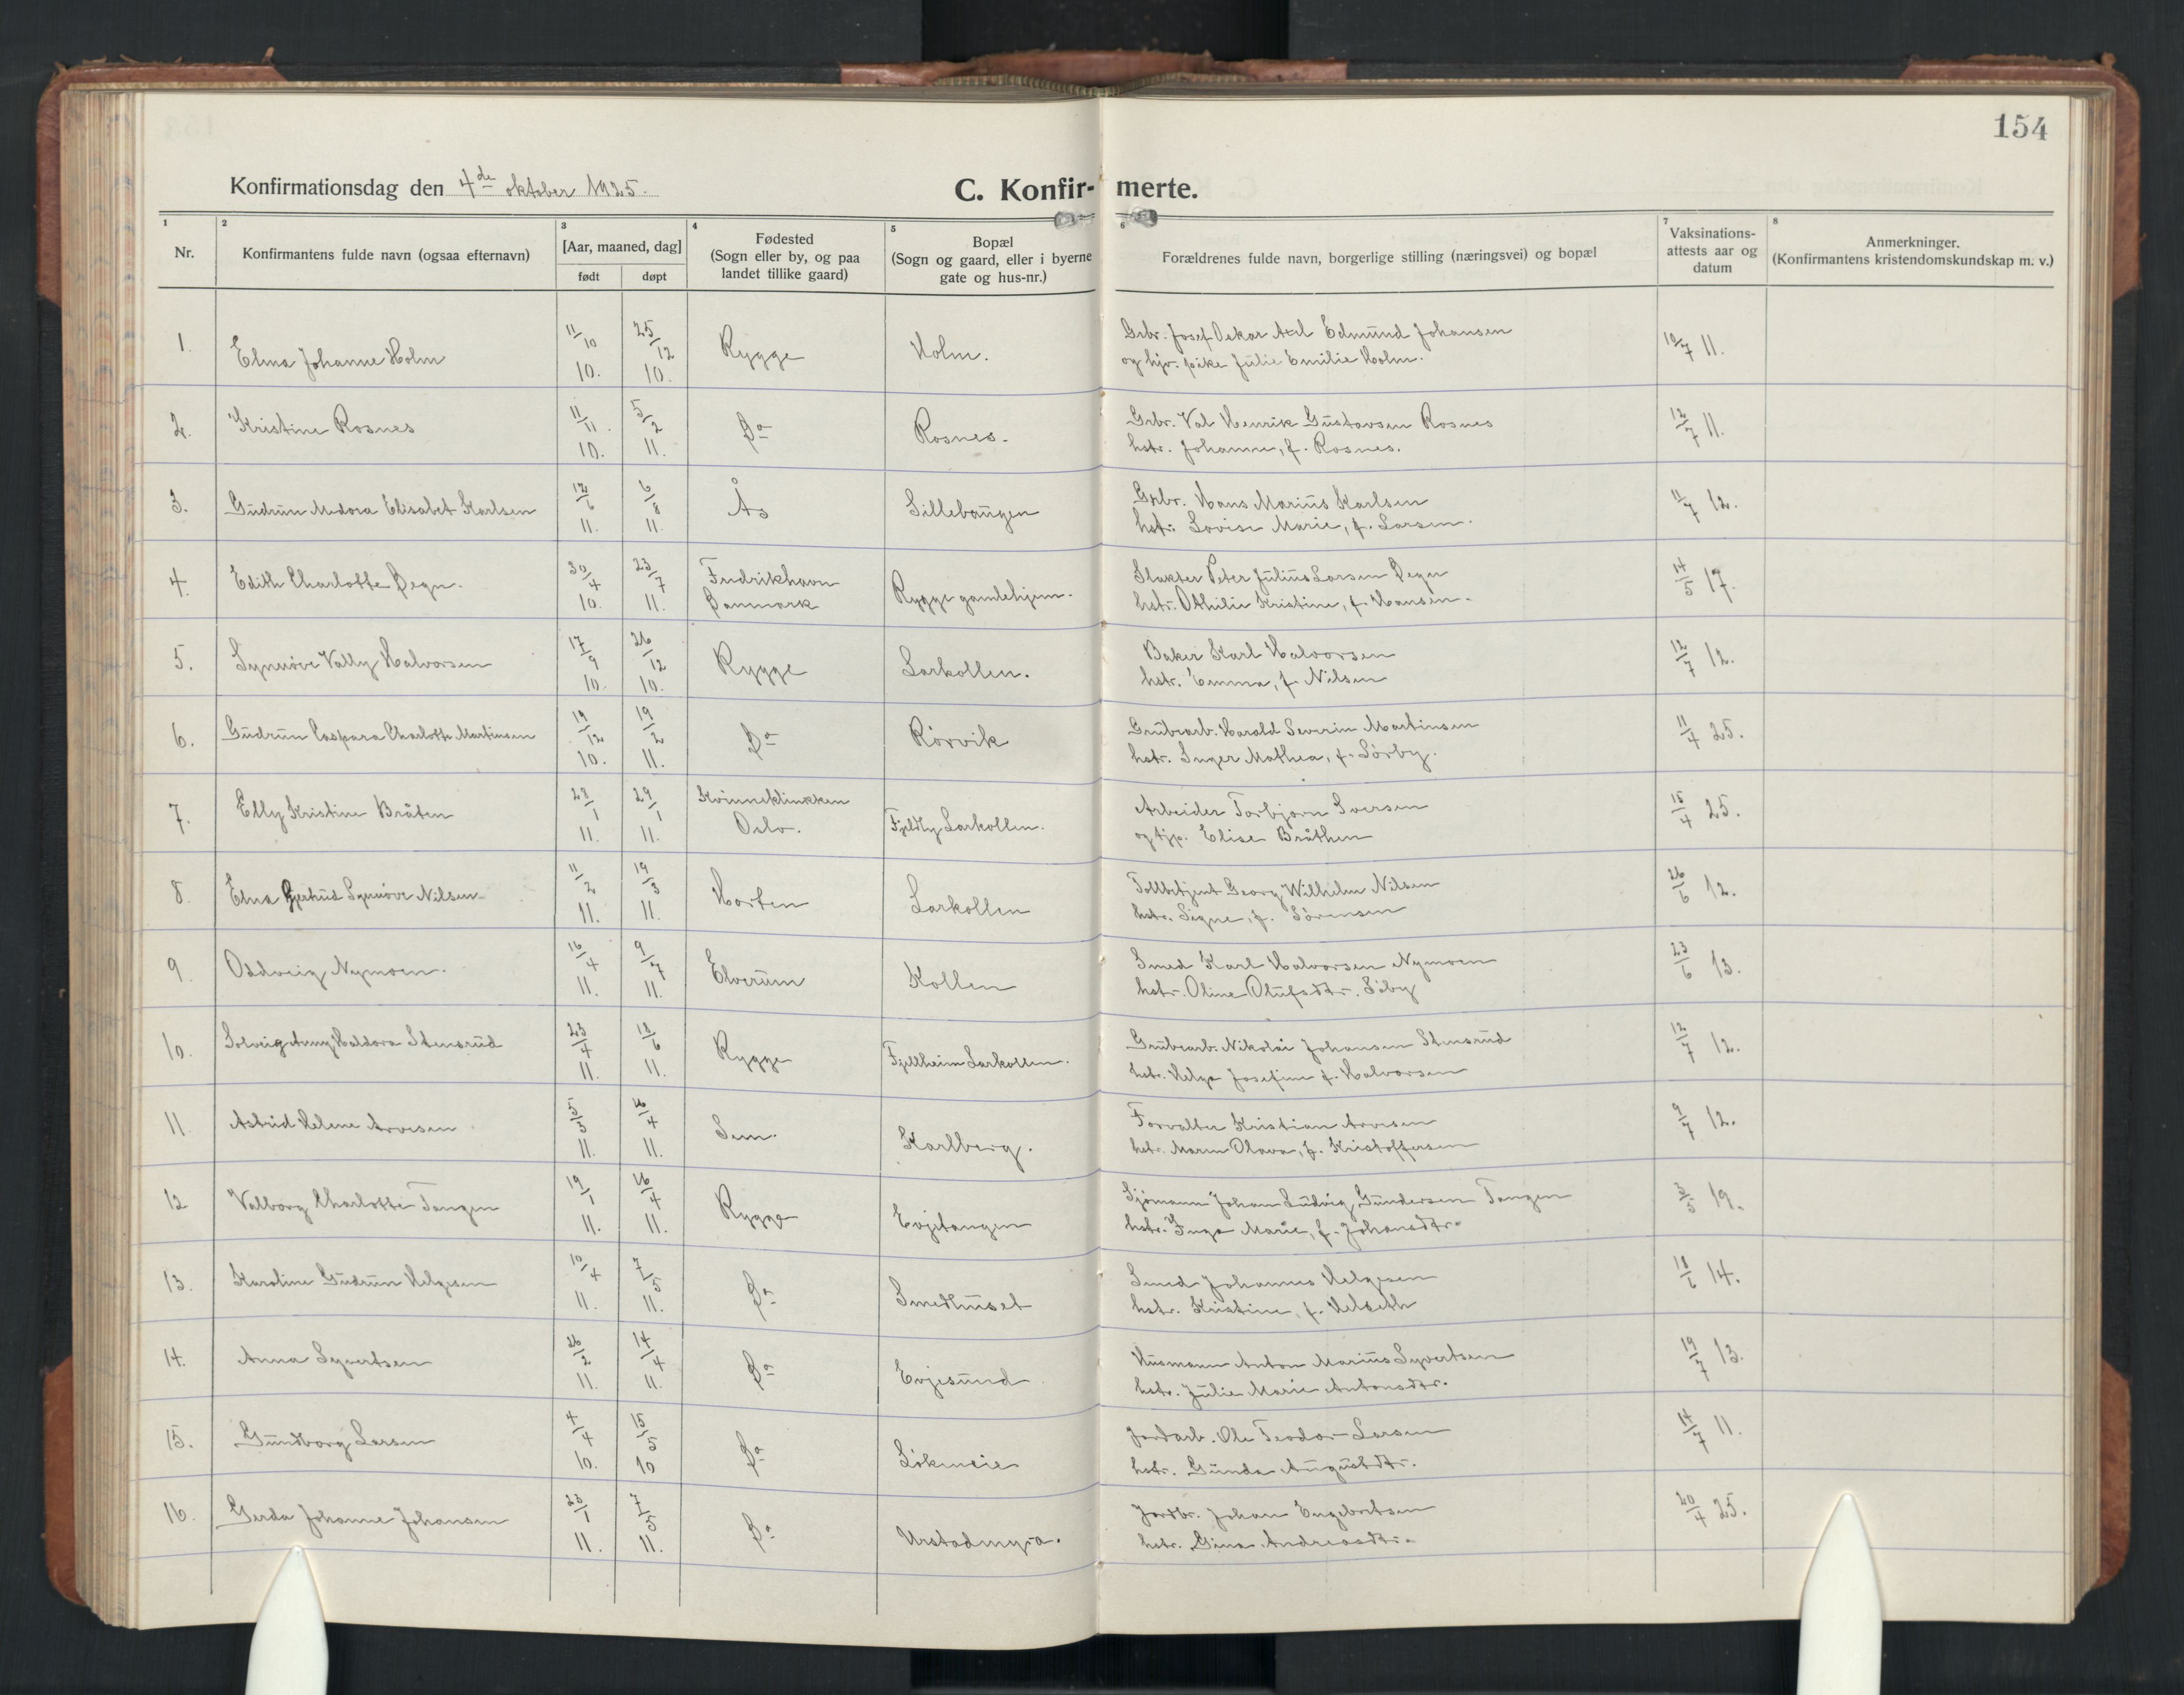 154
Konfirmationsdag den 4de oktober 1925.
C. Konfirmerte.
1 Nr.
2 Konfirmantens fulde navn (ogsaa efternavn)
3 [Aar, maaned, dag] født døpt
4 Fødested (Sogn eller by, og paa landet tillike gaard)
5 Bopæl (Sogn og gaard, eller i byerne gate og hus-nr.)
6 Forældrenes fulde navn, borgerlige stilling (næringsvei) og bopæl
7 Vaksinations-attests aar og datum
8 Anmerkninger. (Konfirmantens kristendomskundskap m. v.)
1. Elna Johanne Holm 11/10 10. 25/12 10. Rygge Holm. Grbr. Josef Oskar Axel Edmund Johansen 10/7 11.
og hjv. pike Julie Emilie Holm.
2. Kristine Rosnes 11/11 10. 5/2 11. Do Rosnes. Grbr. Val Henrik Gustavsen Rosnes 12/7 11.
hstr. Johanne, f. Rosnes.
3. Gudrun Medora Elisabet Karlsen 12/6 11. 6/8 11. Ås Sillebaugen Grbr. Hans Marius Karlsen 11/7 12.
hstr. Lovise Marie, f. Larsen.
4. Edith Charlotte Degn. 30/4 10. 23/7 11. Fredrikhavn Danmark Rygge gamlehjem. Slakter Peter Julius Larsen Degn 14/5 17.
hstr. Othilie Kristine, f. Hansen.
5. Synnöve Vally Halvorsen 17/9 10. 26/12 10. Rygge Larkollen. Baker Karl Halvorsen 12/7 12.
hstr. Emma, f. Nilsen
6. Gudrun Caspara Charlotte Martinsen 19/12 10. 19/2 11. Do Rörvik Grubearb. Harald Severin Martinsen 11/4 25.
hstr. Inger Mathea, f. Sörby.
7. Elly Kristine Bråten 28/1 11. 29/1 11. Kvinneklinikken Oslo. Fjeldly Larkollen. Arbeider Torbjörn Iversen 15/4 25.
og tjp. Elise Bråthen
8. Elna Gjertrud Synnöve Nilsen 11/2 11. 19/3 11. Horten Larkollen Tollbetjent Georg Wilhelm Nilsen 26/6 12.
hstr. Signe, f. Sörensen
9. Oddveig Nymoen. 16/4 11. 9/7 11. Elverum Kollen Smed Karl Halvorsen Nymoen 23/6 13.
hstr. Oline Olufsdtr. Säby
10. Solveig Anny Haldora Stensrud 23/4 11. 18/6 11. Rygge Fjellheim Larkollen. Grubearb. Nikolai Johansen Stensrud 12/7 12.
hstr. Helga Josefine f. Halvorsen
11. Astrid Helene Arvesen 5/3 11. 16/4 11. Sem. Karlberg. Forvalter Kristian Arvesen 9/7 12.
hstr. Maren Olava, f. Kristoffersen
12 Valborg Charlotte Tangen 19/1 11. 16/4 11. Rygge Evjetangen Sjömann Johan Ludvig Gundersen Tangen 3/5 19.
hstr. Inga Marie, f. Johansdtr.
13. Karoline Gudrun Helgesen 10/4 11. 7/5 11. Do Smedhuset Smed Johannes Helgesen 18/6 14.
hstr. Kristine, f. Helseth
14. Anna Syvertsen 26/2 11. 14/4 11. Do Evjesund Husmann Anton Marius Syvertsen 19/7 13.
hstr. Julie Marie Antonsdtr.
15. Gundborg Larsen 4/4 10. 15/5 10 Do Lökneeie Jordarb. Ole Teodor Larsen 14/7 11.
hstr. Gunda Augustdtr.
16. Gerda Johanne Johansen 23/1 11. 7/5 11. Do Urstadmyra. Jordbr. Johan Engebretsen 20/4 25.
hstr. Gina Andreasdtr.